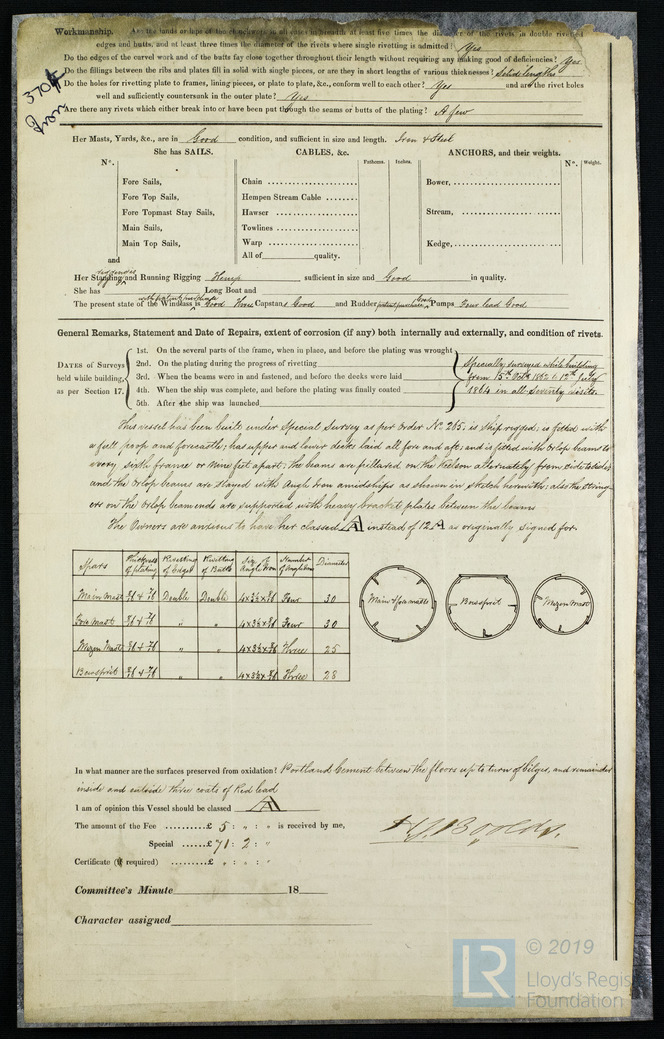 Workmanship. Are the lands or laps of the clenchwork in all cases in breadth at least five times the diameter of the rivets in double rivetted
edges and butts, and at least three times the diameter of the rivets where single rivetting is admitted? Yes
Do the edges of the carvel work and of the butts fay close together throughout their length without requiring any making good of deficiencies? Yes
Do the fillings between the ribs and plates fill in solid with single pieces, or are they in short lengths of various thicknesses? Solid lengths
Do the holes for rivetting plate to frames, lining pieces, or plate to plate, &c., conform well to each other? Yes and are the rivet holes
well and sufficiently countersunk in the outer plate? Yes
Are there any rivets which either break into or have been put through the seams or butts of the plating? A few
3704
Iron
Her Masts, Yards, &c., are in Good condition, and sufficient in size and length. Iron & Steel
She has SAILS. CABLES, &c. ANCHORS, and their weights.
N°. Fathoms. Inches. N°. Weight.
Fore Sails, Chain Bower,
Fore Top Sails, Hempen Stream Cable
Fore Topmast Stay Sails, Hawser Stream,
Main Sails, Towlines
Main Top Sails, Warp Kedge,
and All of quality.
Her Standing and Running Rigging Hemp sufficient in size and Good in quality.
She has Long Boat and
The present state of the Windlass is Good Capstan Good and Rudder Good Pumps Four lead Good
General Remarks, Statement and Date of Repairs, extent of corrosion (if any) both internally and externally, and condition of rivets.
DATES of Surveys held while building, as per Section 17.
1st. On the several parts of the frame, when in place, and before the plating was wrought
2nd. On the plating during the progress of rivetting
3rd. When the beams were in and fastened, and before the decks were laid
4th. When the ship was complete, and before the plating was finally coated
5th. After the ship was launched
Specially surveyed while building
from 15th Octr 1862 to 12th July
1864 in all Seventy visits.
This vessel has been built under Special Survey as per Order No. 265; is ship rigged; is fitted with
a full poop and forecastle; has upper and lower decks laid all fore and aft; and is fitted with Orlop beams to
every sixth frame or nine feet apart; the beams are pillared on the Keelson alternately from side to side
and the Orlop beams are stayed with Angle Iron amidships as shewn in sketch herewith; also the string-
ers on the Orlop beam ends are supported with heavy bracket plates between the beams
The Owners are anxious to have her classed A instead of 12A as originally signed for
Spars Thickness of plating Rivetting of Edges Rivetting of Butts Size of Angle Iron Number of Angle Irons Diameter
Main Mast Double Double Four 30
Fore Mast " " Four 30
Mizen Mast " " Three 25
Bowsprit " " Three 28
Main & fore masts Bowsprit Mizen Mast
In what manner are the surfaces preserved from oxidation? Portland Cement between the floors up to turn of bilges, and remainder
inside and outside three coats of Red lead
I am of opinion this Vessel should be classed A
The amount of the Fee £ 5 : " : " is received by me,
Special £ 71 : 2 : "
Certificate (if required) £ " : " : "
Committee's Minute 18
Character assigned
LR © 2019
Lloyd's Regis
Foundation